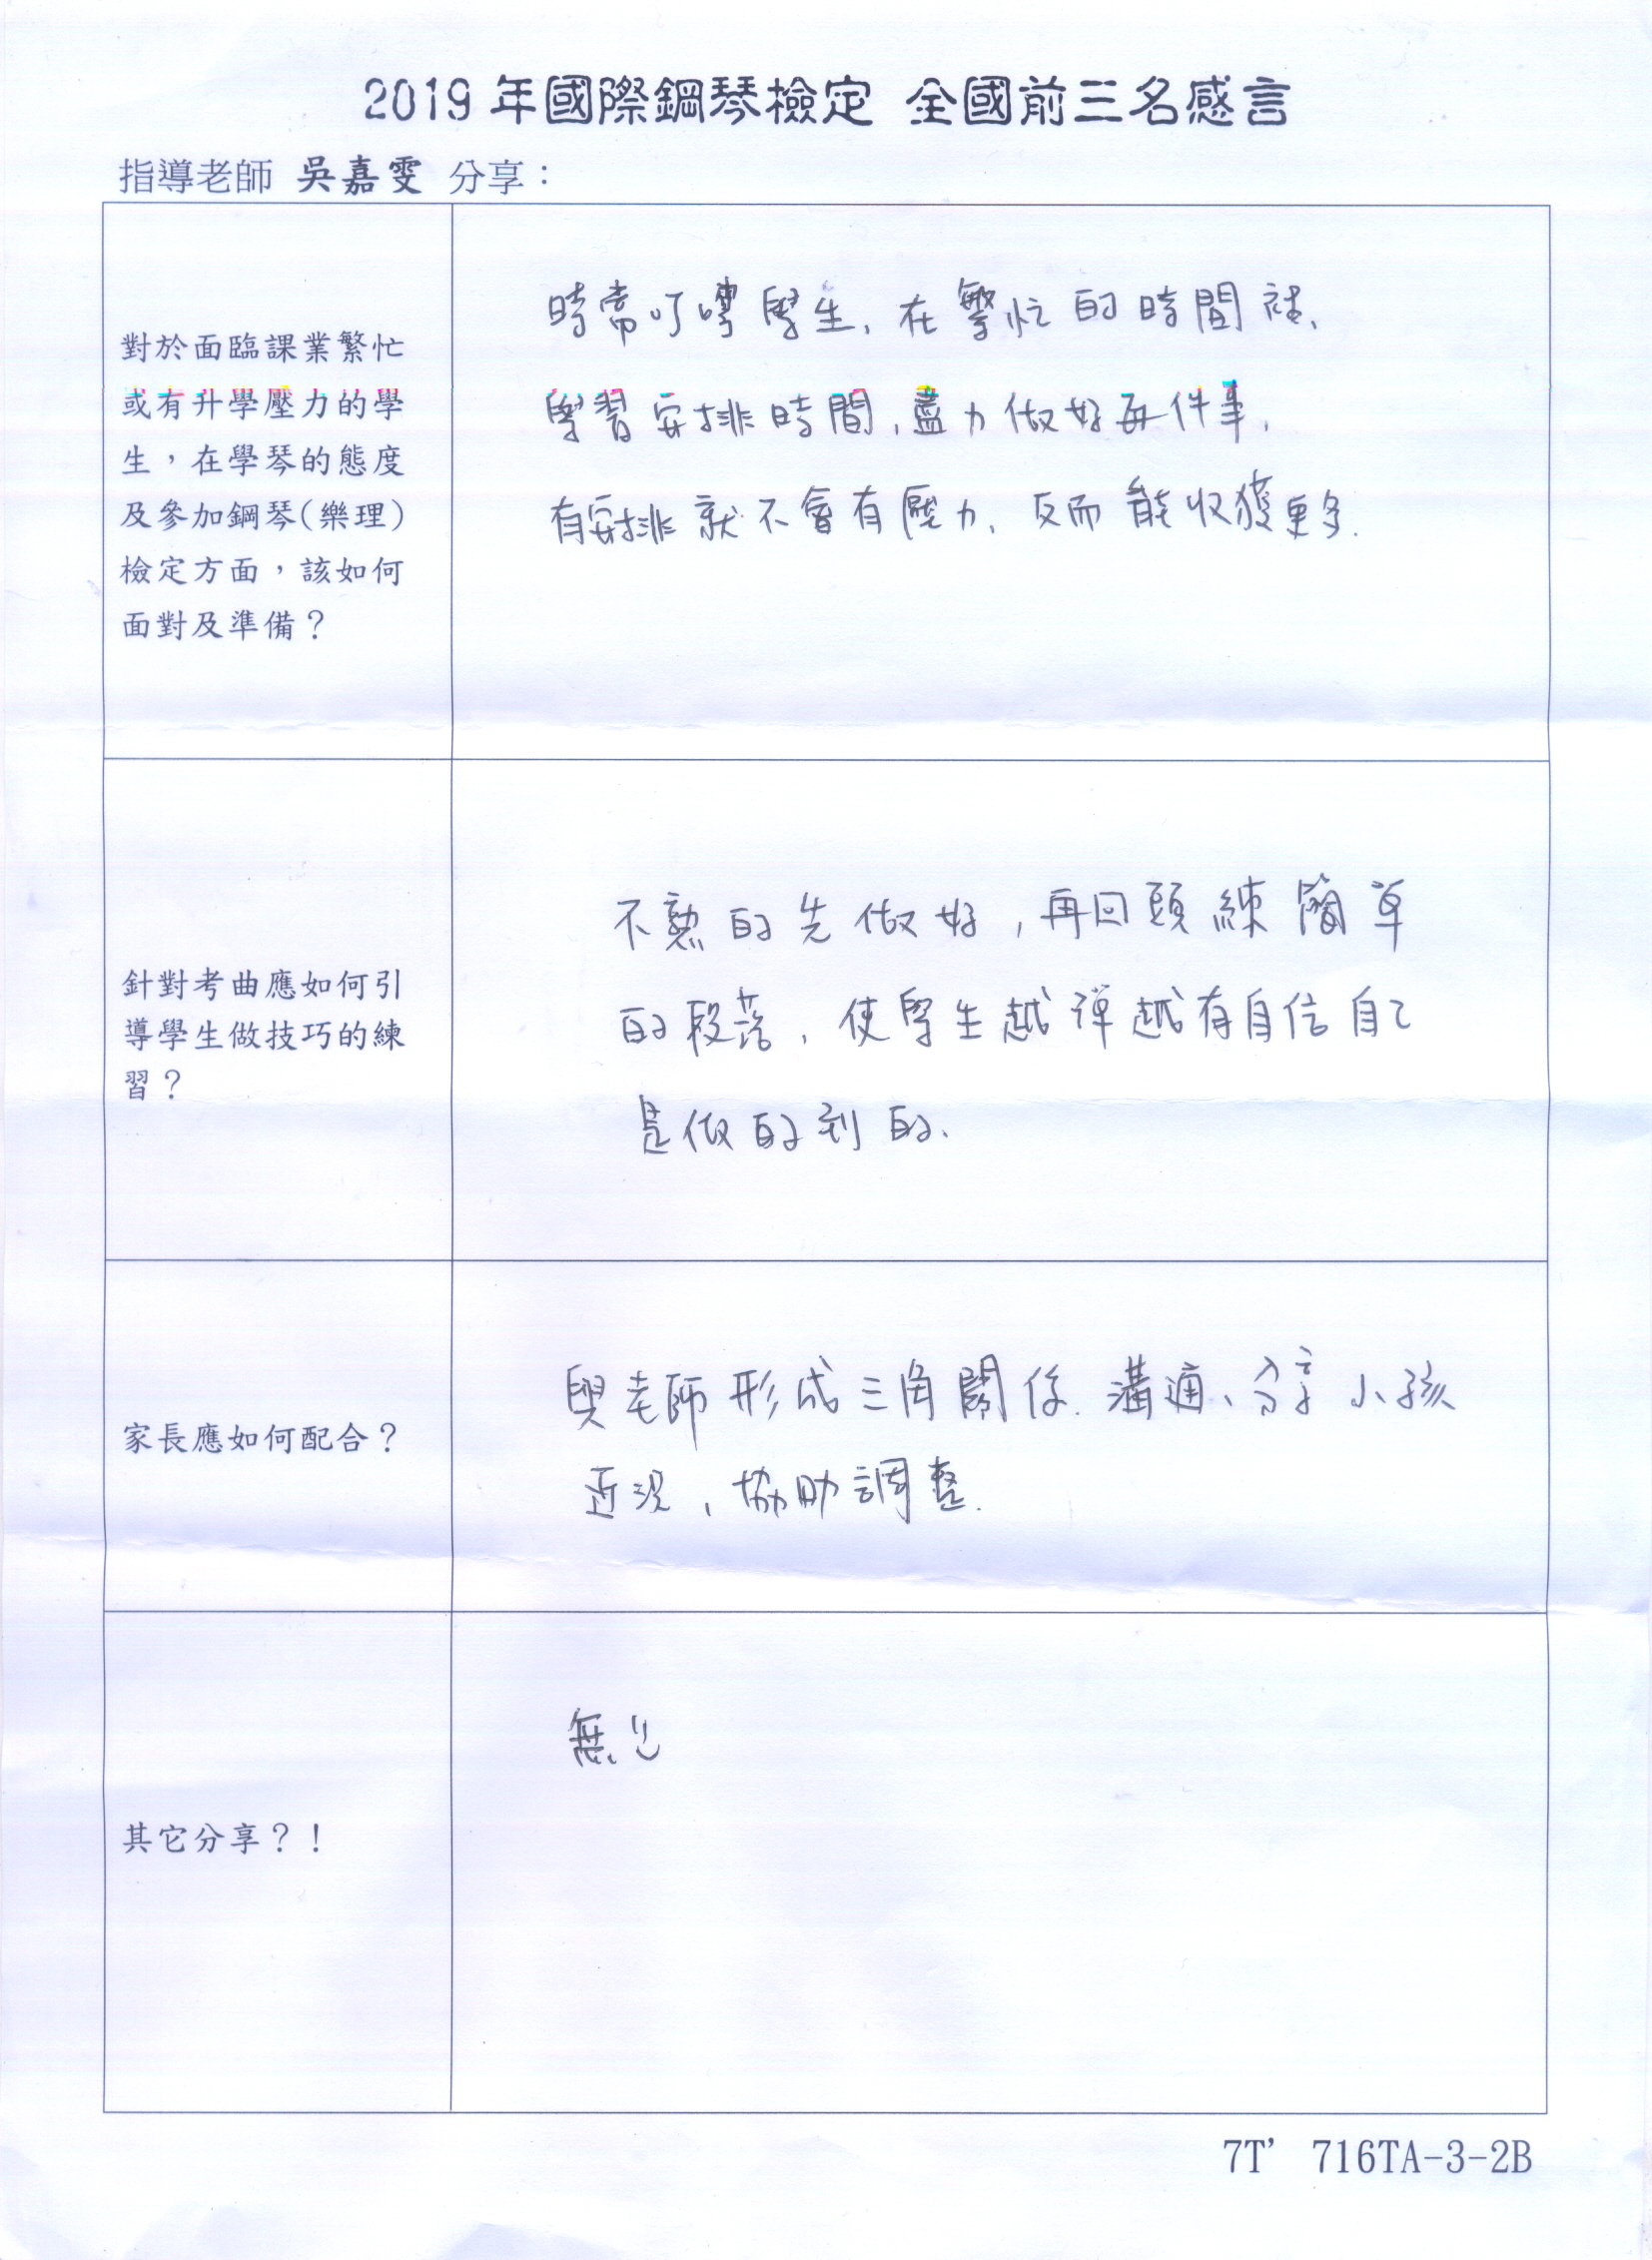 2019 年國際鋼琴檢定 全國前三名感言
指導老師 吳嘉雯 分享：
對於面臨課業繁忙
或有升學壓力的學
生，在學琴的態度
及參加鋼琴(樂理)
檢定方面，該如何
面對及準備？
時常叮嚀學生、在繁忙的時間裡、
學習安排時間,盡力做好每件事.
有安排就不會有壓力、反而能收獲更多.
針對考曲應如何引
導學生做技巧的練
習？
不熟的先做好,再回頭練簡單
的段落,使學生越彈越有自信自己
是做的到的、
家長應如何配合？
與老師形成三角關係.溝通、分享小孩
近況,協助調整.
其它分享？！
無
7T’ 716TA-3-2B